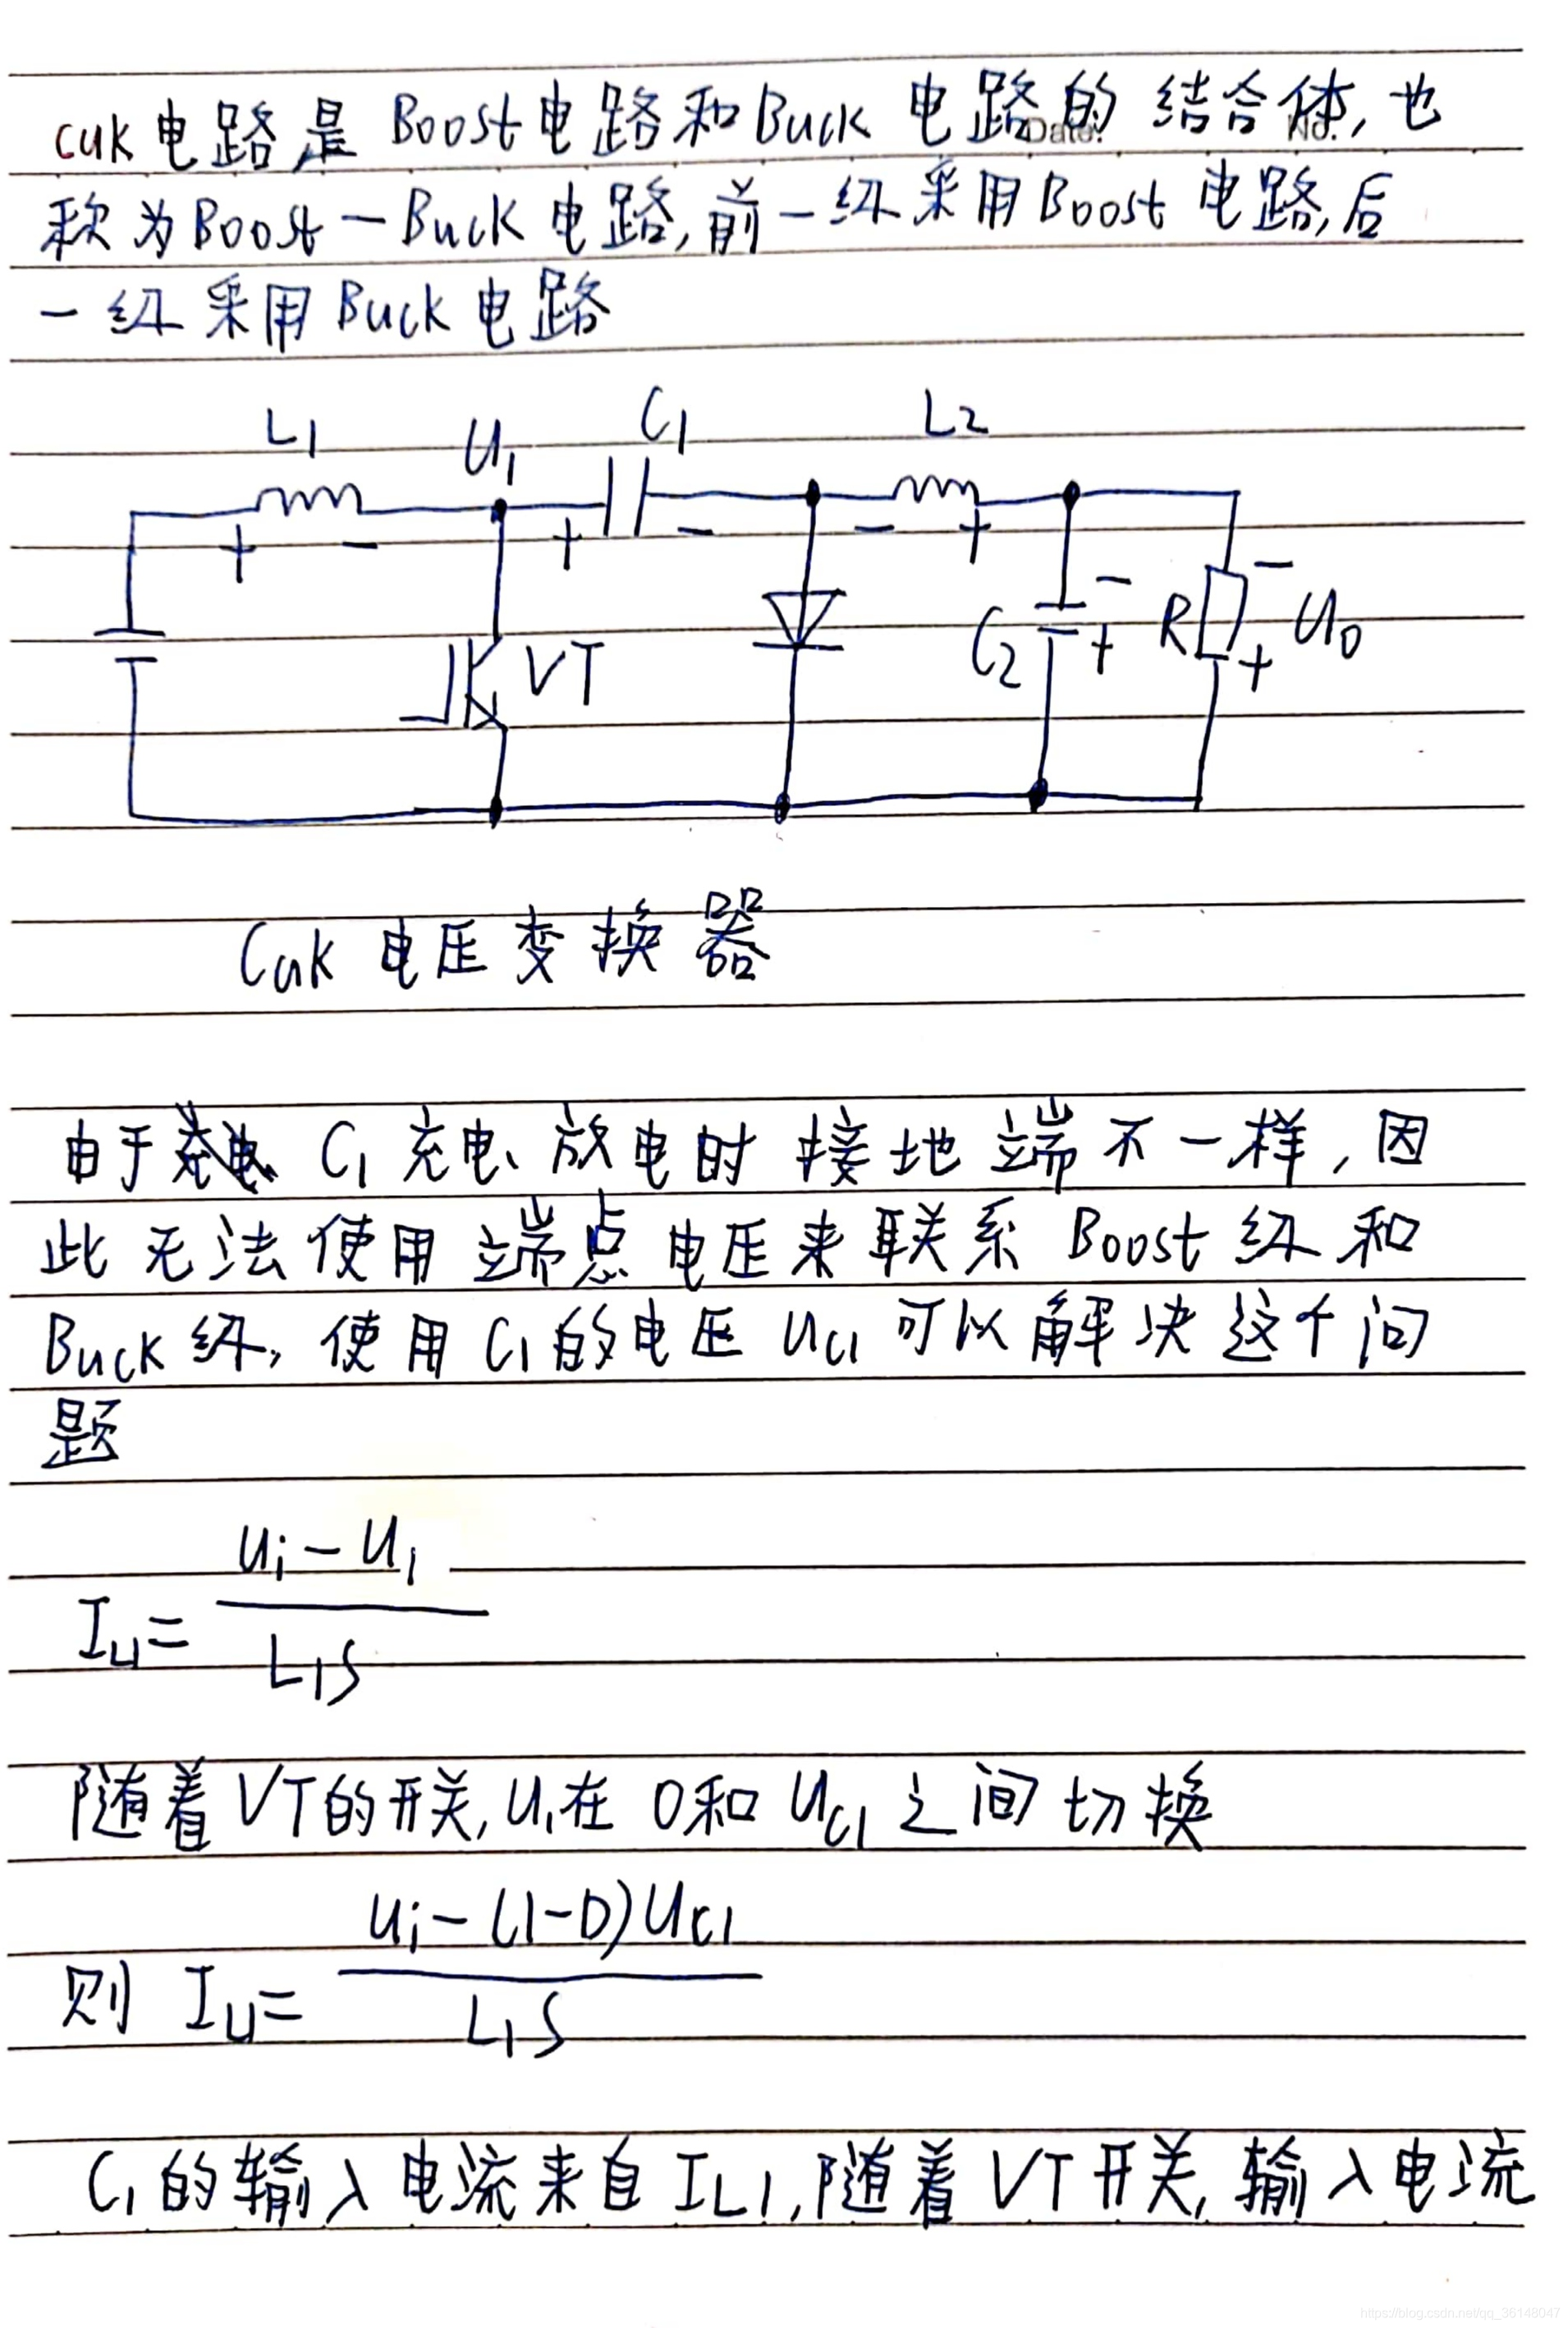 cuk电路是Boost电路和Buck电路的结合体,也
Date:
No.
称为Boost-Buck电路,前一级采用Boost电路,后
一级采用Buck电路
L1 U1 C1 L2
+ - + - - +
VT C2 - + R - + U0
Cuk电压变换器
由于 C1充电、放电时接地端不一样,因
此无法使用端点电压来联系Boost级和
Buck级,使用C1的电压UC1可以解决这个问
题
IL1= (Ui-U1)/(L1S)
随着VT的开关,U1在0和UC1之间切换
则 IL1= (Ui-(1-D)UC1)/(L1S)
C1的输入电流来自IL1,随着VT开关,输入电流
https://blog.csdn.net/qq_36148047